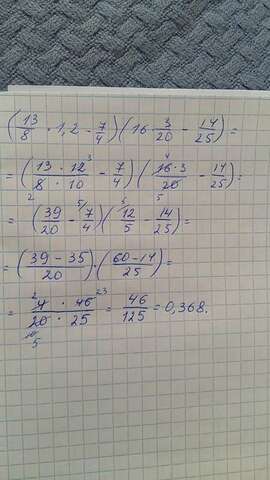 (13/8 · 1,2 - 7/4)(16 · 3/20 - 14/25) =
= (13 · 12 3/8 2 · 10 - 7/4)(16 4 · 3/20 5 - 14/25) =
= (39/20 - 5/ 7/4)(5/ 12/5 - 14/25) =
= (39 - 35/20) · (60 - 14/25) =
= 2 4 · 46 23/20 10 5 · 25 = 46/125 = 0,368.